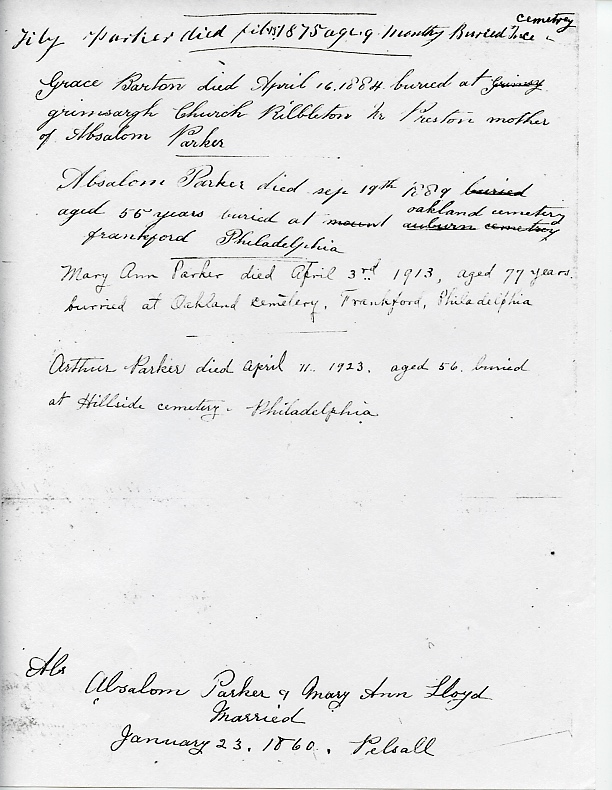 cemetrey
Tily Parker died feb 1875 age 9 months Buried Ince
Grace Barton died April 16. 1884 buried at Grimsy
grimsargh Church Ribbleton Nr Preston mother
of Absalom Parker
Absalom Parker died sep 19th 1889 buried
aged 55 years buried at mount auburn cemetrey
oakland cemetery
frankford Philadelphia
Mary Ann Parker died April 3rd 1913, aged 77 years.
burried at Oakland cemetery, Frankford, Philadelphia
Arthur Parker died April 11. 1923. aged 56. buried
at Hillside cemetery. Philadelphia
Abs
Absalom Parker & Mary Ann Lloyd
Married
January 23. 1860. Pelsall